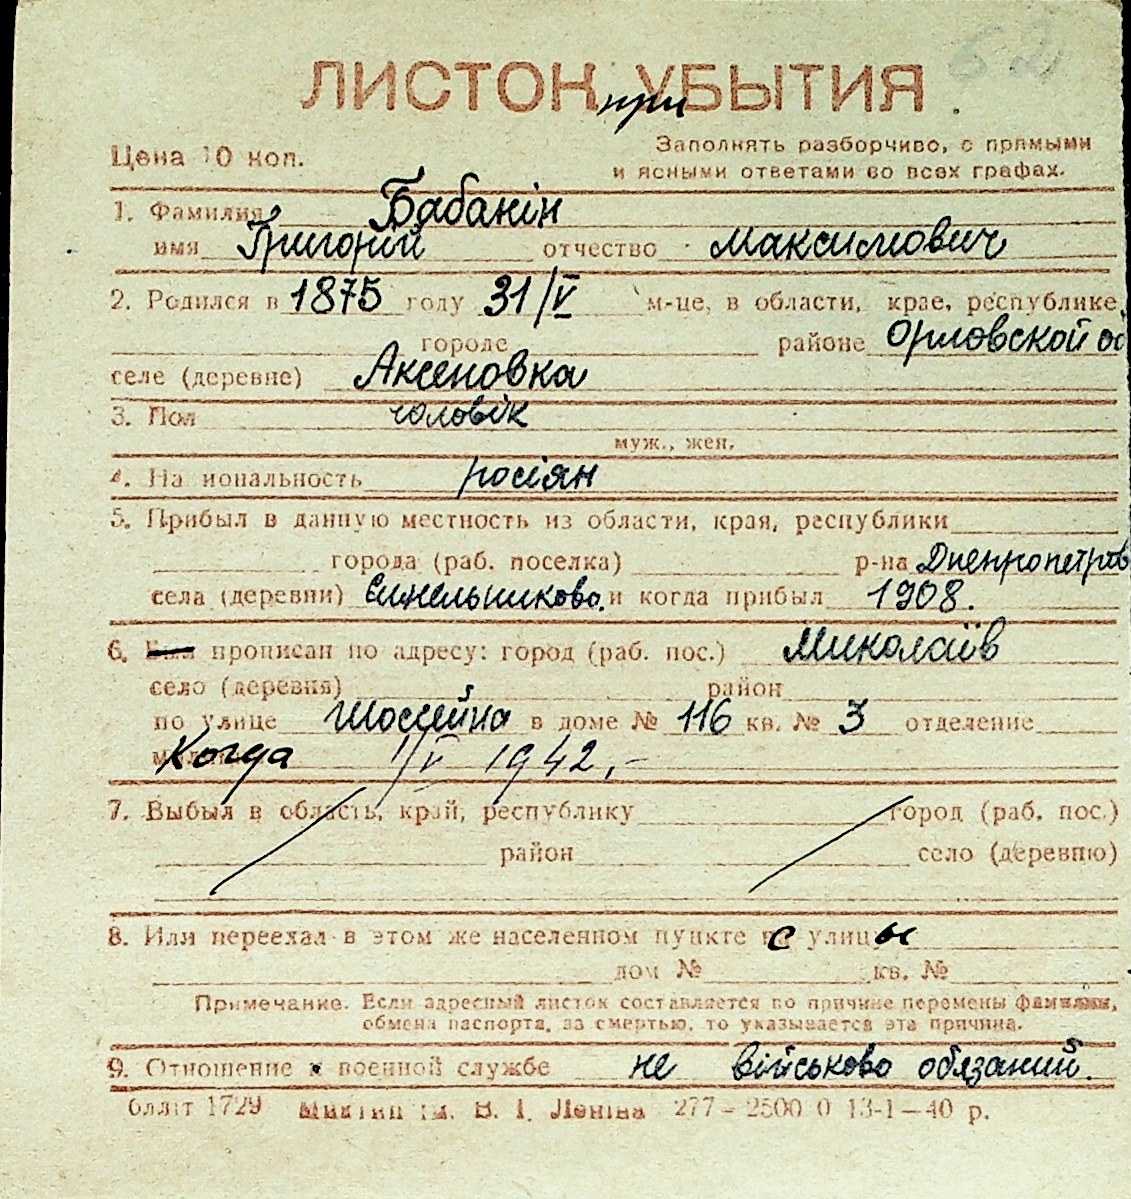 62
ЛИСТОК УБЫТИЯ
при
Цена 10 коп.
Заполнять разборчиво, с прямыми
и ясными ответами во всех графах.
1. Фамилия Бабанін
имя Григорій отчество Максимович
2. Родился в 1875 году 31/V м-це, в области, крае, республике,
городе районе Орловской об
селе (деревне) Аксеновка
3. Пол чоловік
муж., жен.
4. На иональность росіян
5. Прибыл в данную местность из области, края, республики
города (раб. поселка) р-на Днепропетров
села (деревни) Синельниково. и когда прибыл 1908.
6. прописан по адресу: город (раб. пос.) Миколаїв
село (деревня) район
по улице Шоссейна в доме № 116 кв. № 3 отделение
Когда 1/V 1942,-
7. Выбыл в область, край, республику город (раб. пос.)
район село (деревню)
8. Или переехал в этом же населенном пункте с улицы
дом № кв. №
Примечание. Если адресный листок составляется по причине перемены фамилии,
обмена паспорта, за смертью, то указывается эта причина.
9. Отношение к военной службе не військово обязаний.
облліт 1729 ім. В. І. Леніна 277-2500 0 13-1-40 р.